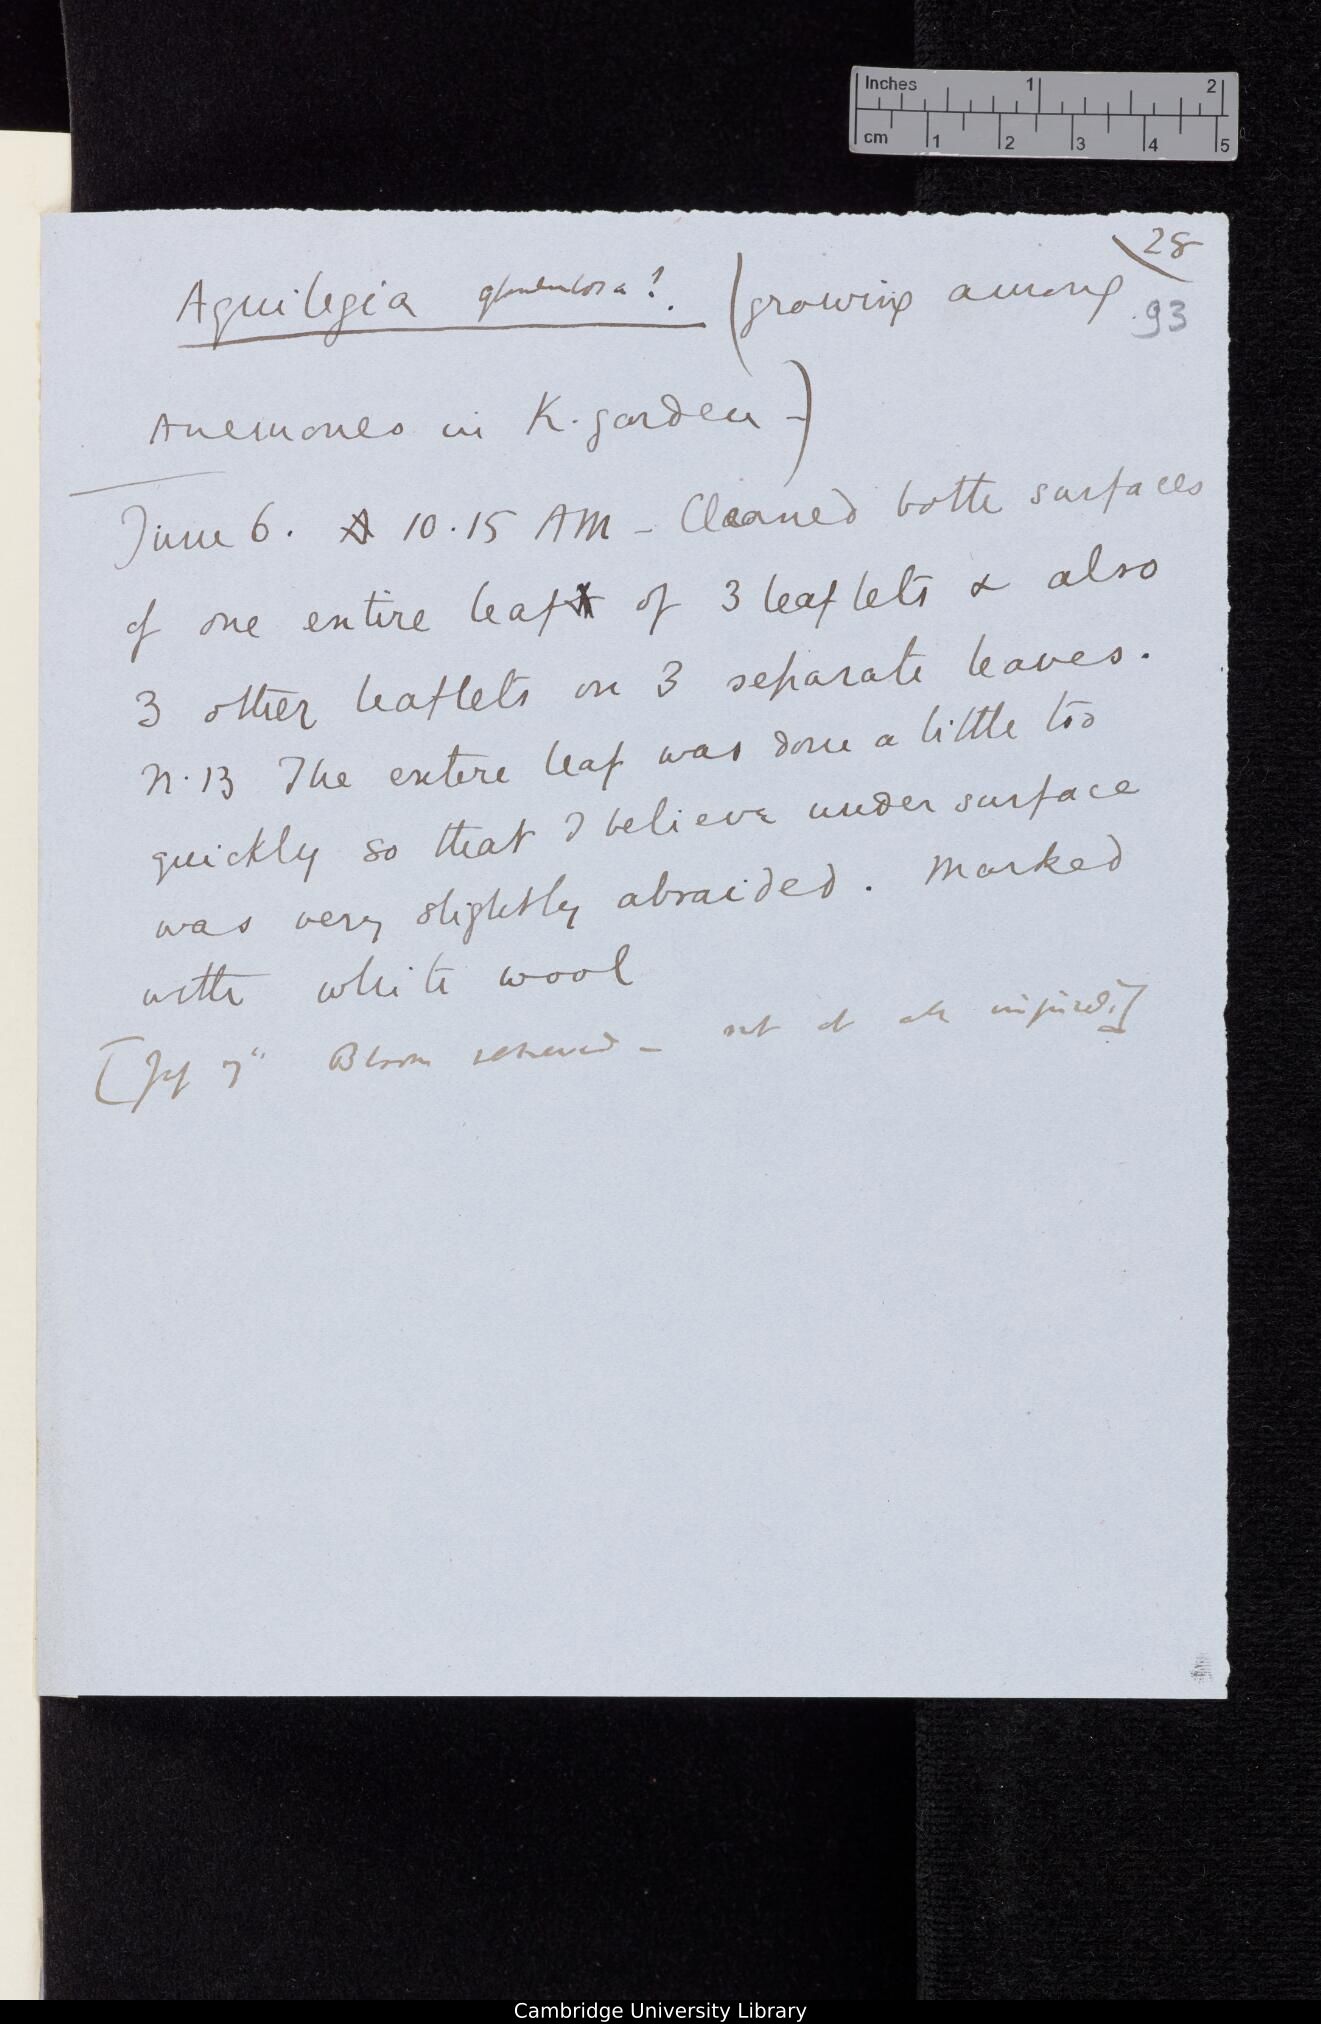 Inches 1 2
cm 1 2 3 4 5
28
Aquilegia glandulosa?. (growing among
93
Anemones in K. garden -)
June 6. A 10.15 AM - Cleaned both surfaces
of one entire leaf of 3 leaflets & also
3 other leaflets on 3 separate leaves.
N.B The entire leaf was done a little too
quickly so that I believe under surface
was very slightly abraided. Marked
with white wool
[July 7th Bloom removed - not at all injured.]
Cambridge University Library